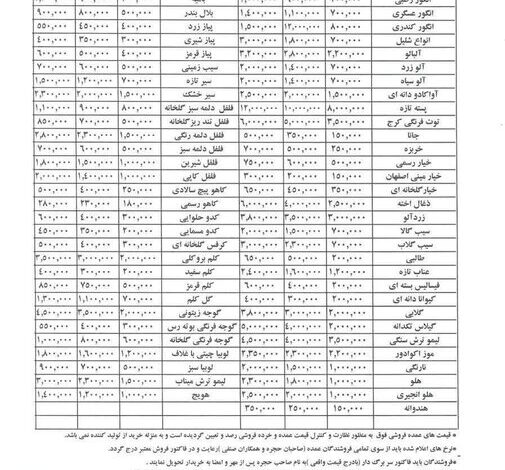 انگور عسگری ۷۰۰,۰۰۰ ۱,۱۰۰,۰۰۰ ۱,۴۰۰,۰۰۰ بلال بندر ۵۰۰,۰۰۰ ۸۰۰,۰۰۰ ۹۰۰,۰۰۰
انگور کندری ۸۰۰,۰۰۰ ۱۲,۰۰۰,۰۰۰ ۱,۵۰۰,۰۰۰ پیاز زرد ۴۰۰,۰۰۰ ۴۵۰,۰۰۰ ۵۵۰,۰۰۰
انواع شلیل ۱,۰۰۰,۰۰۰ ۱,۸۰۰,۰۰۰ ۳,۰۰۰,۰۰۰ پیاز شیری ۳۰۰,۰۰۰ ۳۵۰,۰۰۰ ۴۰۰,۰۰۰
آلبالو ۲,۲۰۰,۰۰۰ ۲,۸۰۰,۰۰۰ ۳,۲۰۰,۰۰۰ پیاز قرمز ۴۰۰,۰۰۰ ۵۰۰,۰۰۰ ۶۰۰,۰۰۰
آلو زرد ۷۰۰,۰۰۰ ۱,۴۰۰,۰۰۰ ۲,۰۰۰,۰۰۰ سیب زمینی ۵۰۰,۰۰۰ ۶۰۰,۰۰۰ ۷۰۰,۰۰۰
آلو سیاه ۷۰۰,۰۰۰ ۱,۴۰۰,۰۰۰ ۲,۰۰۰,۰۰۰ سیر تازه ۷۰۰,۰۰۰ ۱,۲۰۰,۰۰۰ ۱,۵۰۰,۰۰۰
آواکادو دانه ای ۱,۵۰۰,۰۰۰ ۲,۰۰۰,۰۰۰ ۲,۵۰۰,۰۰۰ سیر خشک ۱,۵۰۰,۰۰۰ ۲,۰۰۰,۰۰۰ ۲,۳۰۰,۰۰۰
پسته تازه ۸,۰۰۰,۰۰۰ ۱۰,۰۰۰,۰۰۰ ۱۲,۰۰۰,۰۰۰ فلفل دلمه سبز گلخانه ۸۰۰,۰۰۰ ۹۰۰,۰۰۰ ۱,۱۰۰,۰۰۰
توت فرنگی کرج ۳,۵۰۰,۰۰۰ ۵,۰۰۰,۰۰۰ ۶,۰۰۰,۰۰۰ فلفل تند ریز گلخانه ۵۰۰,۰۰۰ ۷۰۰,۰۰۰ ۸۵۰,۰۰۰
جانا ۱۵۰,۰۰۰ ۳۵۰,۰۰۰ ۵۰۰,۰۰۰ فلفل دلمه رنگی ۱,۵۰۰,۰۰۰ ۲,۳۰۰,۰۰۰ ۲,۸۰۰,۰۰۰
خربزه ۲۵۰,۰۰۰ ۵۰۰,۰۰۰ ۷۰۰,۰۰۰ فلفل دلمه سبز ۵۰۰,۰۰۰ ۶۰۰,۰۰۰ ۷۰۰,۰۰۰
خیار رسمی ۳۰۰,۰۰۰ ۶۰۰,۰۰۰ ۷۵۰,۰۰۰ فلفل شیرین ۱,۰۰۰,۰۰۰ ۱,۵۰۰,۰۰۰ ۱,۸۰۰,۰۰۰
خیار مینی اصفهان ۱۵۰,۰۰۰ ۲۰۰,۰۰۰ ۳۰۰,۰۰۰ فلفل کاپی ۱,۰۰۰,۰۰۰ ۱,۴۰۰,۰۰۰ ۲,۰۰۰,۰۰۰
خیار گلخانه ای ۳۵۰,۰۰۰ ۴۵۰,۰۰۰ ۶۵۰,۰۰۰ کاهو پیچ سالادی ۲۵۰,۰۰۰ ۴۰۰,۰۰۰ ۵۰۰,۰۰۰
ذغال اخته ۲,۵۰۰,۰۰۰ ۴,۰۰۰,۰۰۰ ۶,۰۰۰,۰۰۰ کاهو رسمی ۱۸۰,۰۰۰ ۲۳۰,۰۰۰ ۲۸۰,۰۰۰
زردآلو ۳,۰۰۰,۰۰۰ ۳,۵۰۰,۰۰۰ ۳,۸۰۰,۰۰۰ کدو حلوایی ۳۰۰,۰۰۰ ۴۰۰,۰۰۰ ۶۰۰,۰۰۰
سیب گالا ۷۰۰,۰۰۰ ۱,۵۰۰,۰۰۰ ۲,۰۰۰,۰۰۰ کدو مسمایی ۲۰۰,۰۰۰ ۳۵۰,۰۰۰ ۴۵۰,۰۰۰
سیب گلاب ۷۰۰,۰۰۰ ۲,۳۰۰,۰۰۰ ۳,۰۰۰,۰۰۰ کرفس گلخانه ای ۳۰۰,۰۰۰ ۴۰۰,۰۰۰ ۵۰۰,۰۰۰
طالبی ۲۰۰,۰۰۰ ۵۰۰,۰۰۰ ۶۵۰,۰۰۰ کلم بروکلی ۲,۰۰۰,۰۰۰ ۳,۰۰۰,۰۰۰ ۳,۵۰۰,۰۰۰
عناب تازه ۱,۲۰۰,۰۰۰ ۱,۶۰۰,۰۰۰ ۲,۴۰۰,۰۰۰ کلم سفید ۲۰۰,۰۰۰ ۳۰۰,۰۰۰ ۴۰۰,۰۰۰
فیسالیس بسته ای ۲۰۰,۰۰۰ ۴۰۰,۰۰۰ ۶۰۰,۰۰۰ کلم قرمز ۵۰۰,۰۰۰ ۷۵۰,۰۰۰ ۸۵۰,۰۰۰
کیوانا دانه ای ۳۰۰,۰۰۰ ۴۰۰,۰۰۰ ۴۰۰,۰۰۰ گل کلم ۷۰۰,۰۰۰ ۱,۱۰۰,۰۰۰ ۱,۳۰۰,۰۰۰
گلابی ۲,۰۰۰,۰۰۰ ۳,۰۰۰,۰۰۰ ۴,۰۰۰,۰۰۰ گوجه زیتونی ۲,۰۰۰,۰۰۰ ۳,۵۰۰,۰۰۰ ۴,۵۰۰,۰۰۰
گیلاس تکدانه ۲,۰۰۰,۰۰۰ ۴,۰۰۰,۰۰۰ ۵,۰۰۰,۰۰۰ گوجه فرنگی بوته رس ۳۰۰,۰۰۰ ۴۰۰,۰۰۰ ۵۵۰,۰۰۰
لیمو ترش سنگی ۳,۵۰۰,۰۰۰ ۴,۰۰۰,۰۰۰ ۴,۵۰۰,۰۰۰ گوجه فرنگی گلخانه ۶۰۰,۰۰۰ ۸۰۰,۰۰۰ ۱,۰۰۰,۰۰۰
موز اکوادور ۲,۲۰۰,۰۰۰ ۲,۳۰۰,۰۰۰ ۲,۳۵۰,۰۰۰ لوبیا چیتی با غلاف ۱,۲۰۰,۰۰۰ ۱,۶۰۰,۰۰۰ ۱,۸۰۰,۰۰۰
نارنگی ۱,۵۰۰,۰۰۰ ۲,۰۰۰,۰۰۰ ۲,۵۰۰,۰۰۰ لوبیا سبز ۵۰۰,۰۰۰ ۷۰۰,۰۰۰ ۹۰۰,۰۰۰
هلو ۱,۳۰۰,۰۰۰ ۱,۸۰۰,۰۰۰ ۲,۳۰۰,۰۰۰ لیمو ترش میناب ۱,۵۰۰,۰۰۰ ۲,۳۰۰,۰۰۰ ۳,۰۰۰,۰۰۰
هلو انجیری ۱,۲۰۰,۰۰۰ ۲,۰۰۰,۰۰۰ ۲,۵۰۰,۰۰۰ هویج ۱,۰۰۰,۰۰۰ ۱,۲۰۰,۰۰۰ ۱,۴۰۰,۰۰۰
هندوانه ۱۵۰,۰۰۰ ۲۵۰,۰۰۰ ۳۵۰,۰۰۰
* قیمت های عمده فروشی فوق به منظور نظارت و کنترل قیمت عمده و خرده فروشی رصد و تعیین گردیده است و به منزله خرید از تولید کننده نمی باشد.
*نرخ های اعلام شده باید از سوی تمامی فروشندگان عمده (صاحبان حجره و همکاران صنفی) رعایت و در فاکتور فروش معتبر درج گردد.
* فروشندگان باید فاکتور سر برگ دار (بادرج قیمت واقعی) به نام صاحب حجره پس از مهر و امضا به خریدار تحویل نمایند.